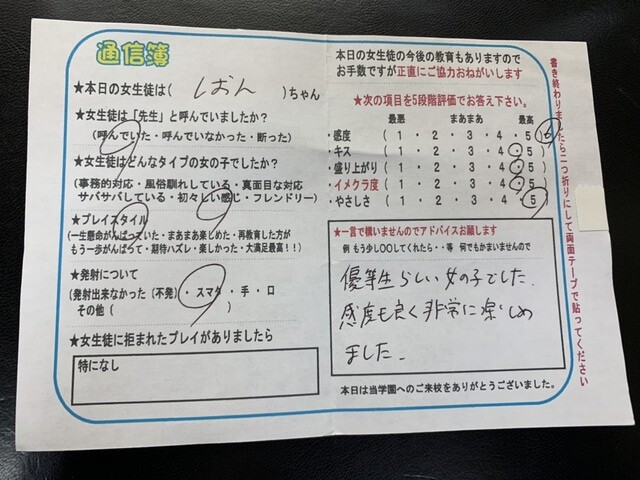 通信簿
★本日の女生徒は( しおん )ちゃん
★女生徒は「先生」と呼んでいましたか?
(呼んでいた・呼んでいなかった・断った)
★女生徒はどんなタイプの女の子でしたか?
(事務的対応・風俗馴れしている・真面目な対応
サバサバしている・初々しい感じ・フレンドリー)
★プレイスタイル
(一生懸命がんばっていた・まあまあ楽しめた・再教育した方が
もう一歩がんばって・期待ハズレ・楽しかった・大満足最高!!)
★発射について
(発射出来なかった(不発)・スマタ・手・口
その他( )
★女生徒に拒まれたプレイがありましたら
特になし
本日の女生徒の今後の教育もありますので
お手数ですが正直にご協力おねがいします
★次の項目を5段階評価でお答え下さい。
最悪 まあまあ 最高
・感度 ( 1 ・ 2 ・ 3 ・ 4 ・ 5 )
・キス ( 1 ・ 2 ・ 3 ・ 4 ・ 5 )
・盛り上がり ( 1 ・ 2 ・ 3 ・ 4 ・ 5 )
・イメクラ度 ( 1 ・ 2 ・ 3 ・ 4 ・ 5 )
・やさしさ ( 1 ・ 2 ・ 3 ・ 4 ・ 5 )
★一言で構いませんのでアドバイスお願します
例 もう少し〇〇してくれたら・・等 何でもかまいませんので
優等生らしい女の子でした。
感度も良く非常に楽しめ
ました。
本日は当学園へのご来校をありがとうございました。
書き終わりましたら二つ折りにして両面テープで貼ってください